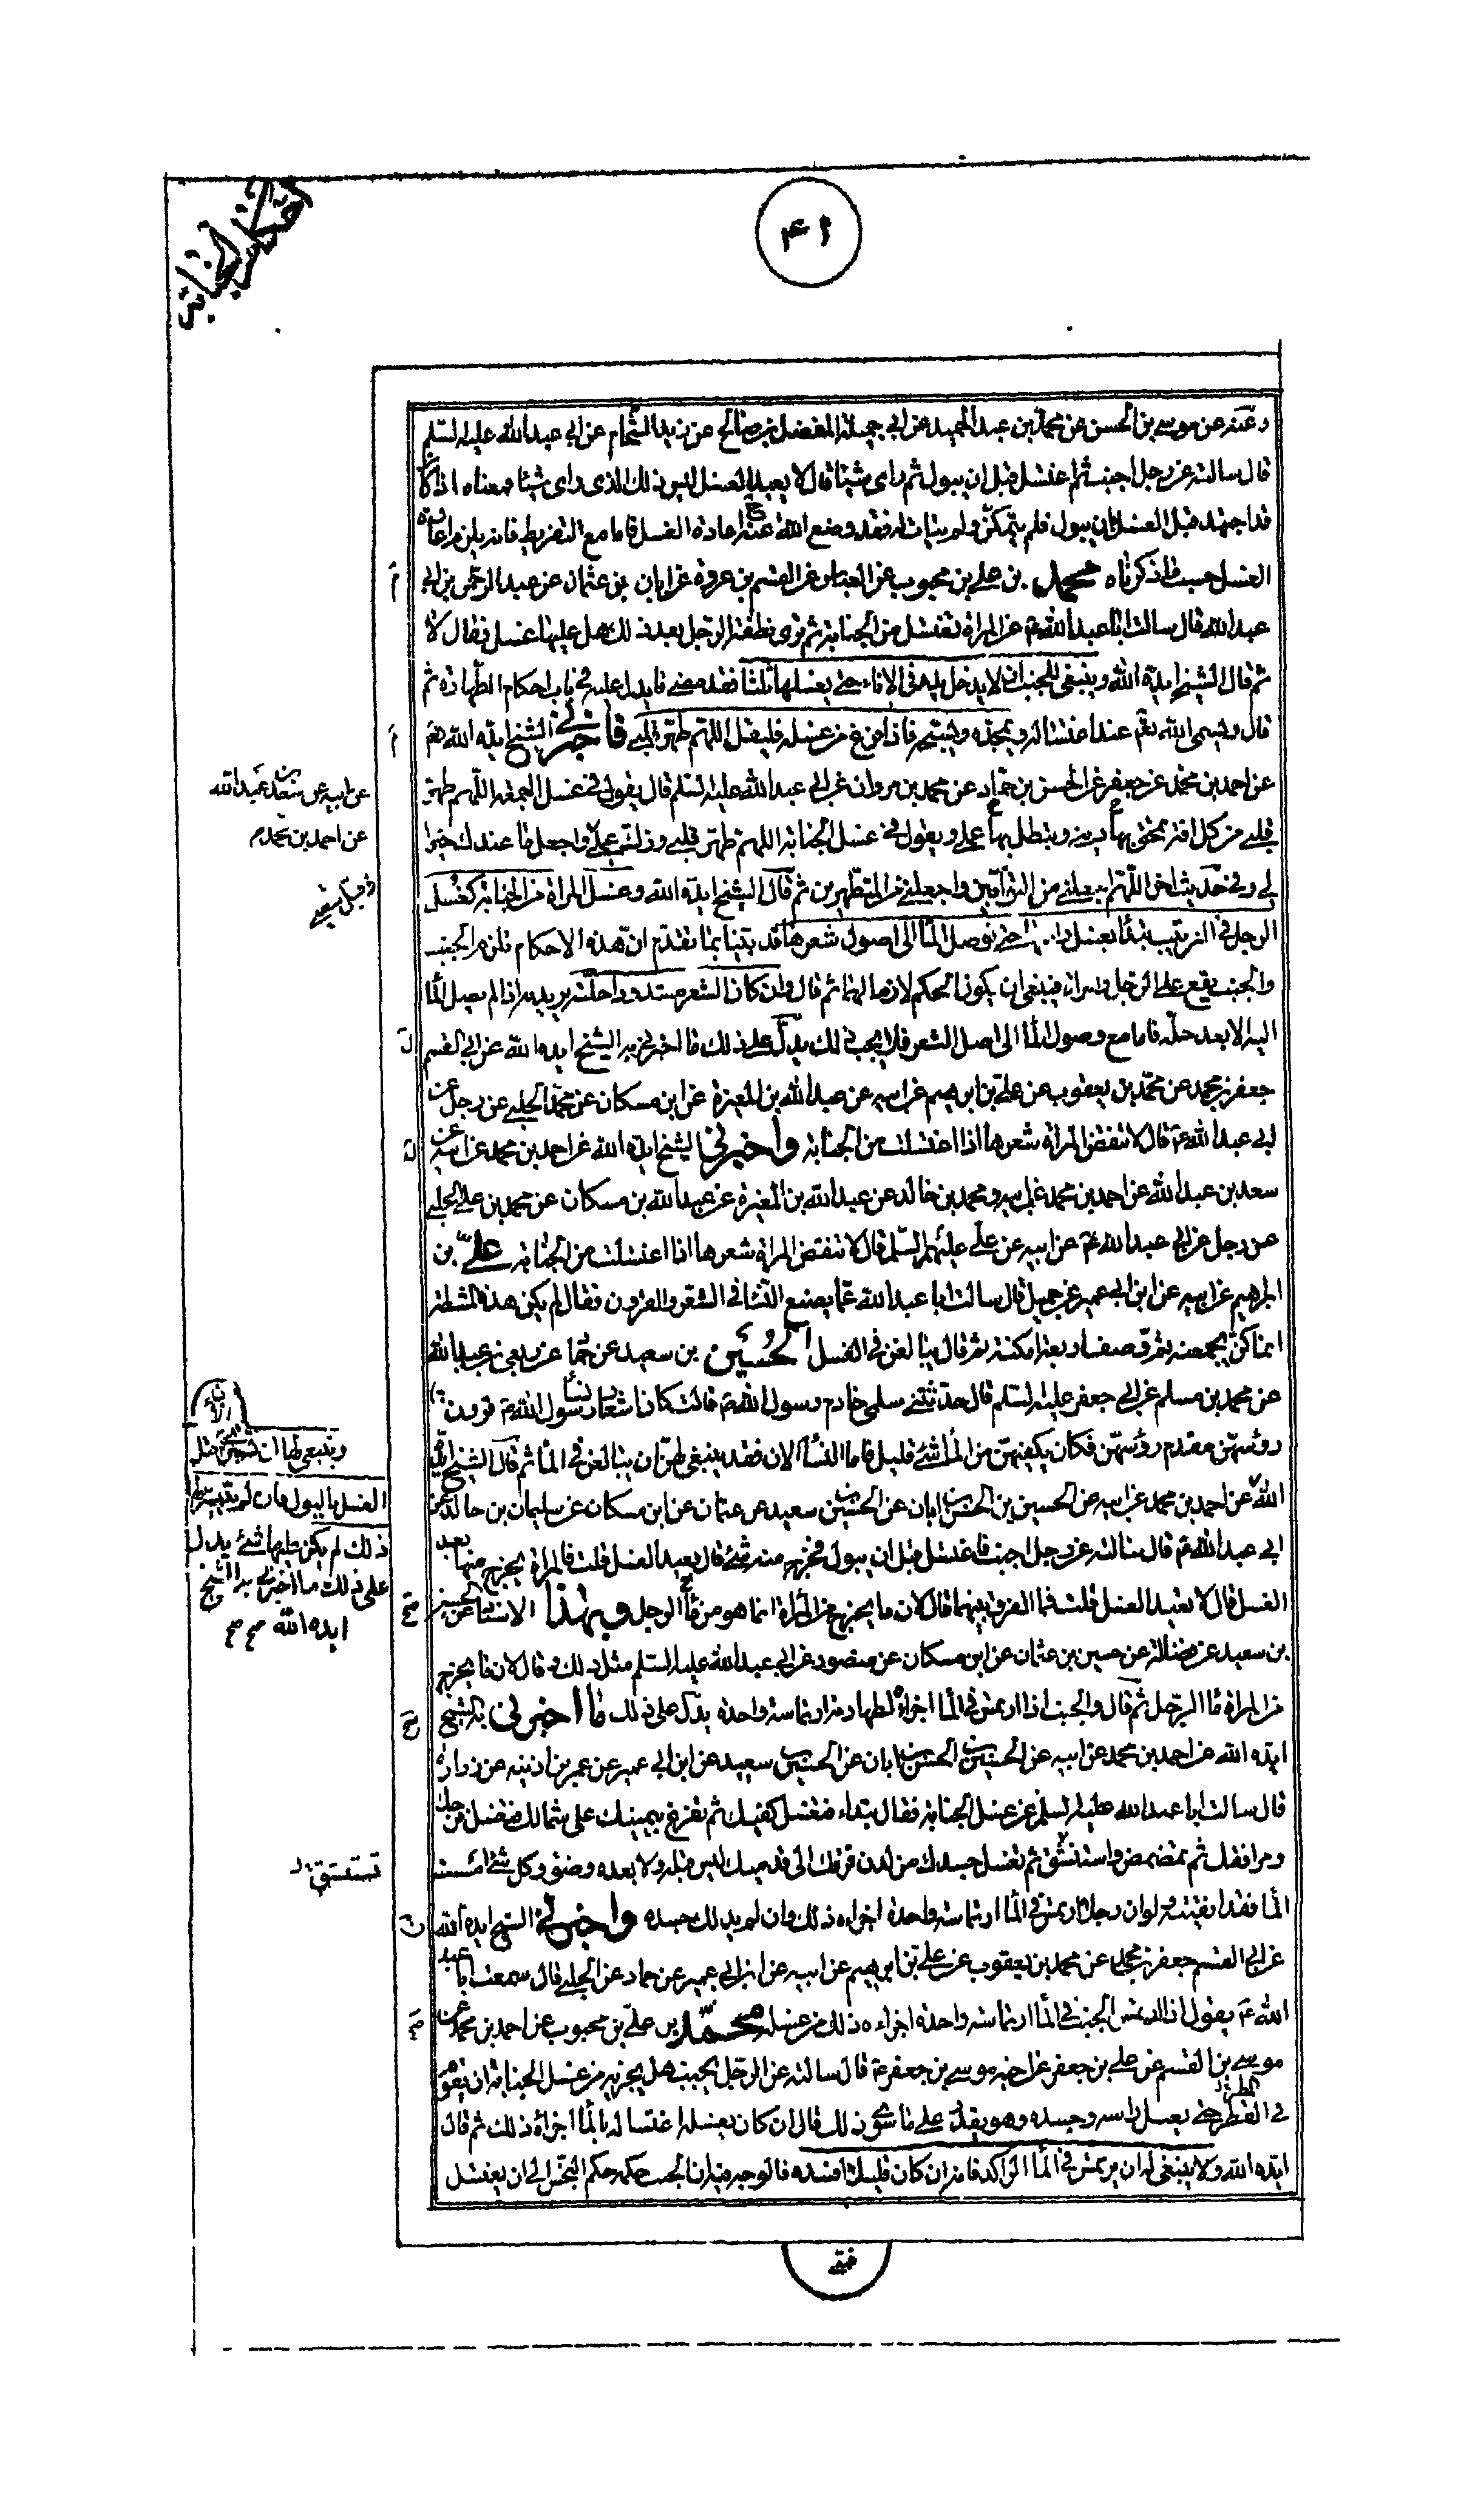 ۴۱
وعنه عن موسى بن الحسن عن محمد بن عبد الحميد عن ابى جميلة المفضل بن صالح عن زيد الشحام عن ابى عبد الله عليه السلم
قال سالته عن رجل اجنب ثم اغتسل قبل ان يبول ثم راى شيئا قال لا يعيد الغسل ليس ذلك الذى راى شيئا فمعناه اذا كان
قد اجتهد قبل الغسل ان يبول فلم يتمكن ولم يتات له فقد وضع الله عنه اعادة الغسل فاما مع التفريط فانه يلزمه اعادة
الغسل حسب ما ذكرناه محمد بن على بن محبوب عن العباس عن القسم بن عروة عن ابان بن عثمان عن عبد الرحمن بن ابى
عبد الله قال سالت ابا عبد الله ع عن المراة تغتسل من الجنابة ثم ترى نطفة الرجل بعد ذلك هل عليها غسل فقال لا
ثم قال الشيخ ايده الله وينبغى للجنب ان لا يدخل يده فى الاناء حتى يغسلها ثلثا فقد مضى ما يدل عليه فى باب احكام الطهارة ثم
قال ويسمى الله تع عند اغتساله ويمجده ويسبحه فاذا فرغ من غسله فليقل اللهم طهر قلبى فاخبرنى الشيخ ايده الله
عن احمد بن محمد عن جعفر عن الحسن بن حماد عن محمد بن مروان عن ابى عبد الله عليه السلم قال يقول فى غسل الجمعة اللهم طهر
قلبى من كل افة تمحق بها دينى وتبطل بها عملى ويقول فى غسل الجنابة اللهم طهر قلبى وزك عملى واجعل ما عندك خيرا
لى وفى حديث اخر اللهم اجعلنى من التوابين واجعلنى من المتطهرين ثم قال الشيخ ايده الله وغسل المراة من الجنابة كغسل
الرجل فى الترتيب تبدا بغسل حتى توصل الما الى اصول شعرها قد بينا بما تقدم ان هذه الاحكام تلزم الجنب
والجنب يقع على الرجل والمراة فينبغى ان يكون الحكم لازما لهما ثم قال وان كان الشعر مشدودا حلته يريد به اذا لم يصل الما
اليه الا بعد حله فاما مع وصول الما الى اصل الشعر فلا يجب ذلك يدل على ذلك ما اخبرنى به الشيخ ايده الله عن ابى القسم
جعفر بن محمد عن محمد بن يعقوب عن على بن ابرهيم عن ابيه عن عبد الله بن المغيرة عن ابن مسكان عن محمد الحلبى عن رجل عن
ابى عبد الله ع قال لا تنقض المراة شعرها اذا اغتسلت من الجنابة واخبرنى الشيخ ايده الله عن احمد بن محمد عن ابيه عن
سعد بن عبد الله عن احمد بن محمد عن ابيه ومحمد بن خالد عن عبد الله بن المغيرة عن عبد الله بن مسكان عن محمد بن على الحلبى
عن رجل عن ابى عبد الله ع عن ابيه عن على عليهم السلم قال لا تنقض المراة شعرها اذا اغتسلت من الجنابة على بن
ابرهيم عن ابيه عن ابن ابى عمير عن جميل قال سالت ابا عبد الله ع عما يصنع النسا فى الشعر والقرون فقال لم يكن هذه المشطة
انما كن يجمعنه ثم وصف اربعة امكنة ثم قال يبالغن فى الغسل الحسين بن سعيد عن حماد عن ربعى بن عبد الله
عن محمد بن مسلم عن ابى جعفر عليه السلم قال حدثتنى سلمى خادم رسول الله ص قالت كان اشعار نسا رسول الله ص قرون
رؤسهن مقدم رؤسهن فكان يكفيهن من الما شئ قليل فاما النسا الان فقد ينبغى لهن ان يبالغن فى الما ثم قال الشيخ ايده
الله عن احمد بن محمد عن ابيه عن الحسين بن الحسن بن ابان عن الحسين بن سعيد عن عثمان عن ابن مسكان عن سليمان بن خالد عن
ابى عبد الله ع قال سالته عن رجل اجنب فاغتسل قبل ان يبول فخرج منه شئ قال يعيد الغسل قلت فالمراة يخرج منها بعد
الغسل قال لا تعيد الغسل قلت فما الفرق بينهما قال لان ما يخرج من المراة انما هو من ما الرجل وبهذا الاسناد عن الحسين
بن سعيد عن فضالة عن حسين بن عثمان عن ابن مسكان عن منصور عن ابى عبد الله عليه السلم مثل ذلك وقال لان ما يخرج
من المراة ما الرجل ثم قال والجنب اذا ارتمس فى الما اجزاه لطهارته ارتماسة واحدة يدل على ذلك ما اخبرنى به الشيخ
ايده الله عن احمد بن محمد عن ابيه عن الحسين بن الحسن بن ابان عن الحسين بن سعيد عن ابن ابى عمير عن عمر بن اذينة عن زرارة
قال سالت ابا عبد الله عليه السلم عن غسل الجنابة فقال تبدا فتغسل كفيك ثم تفرغ بيمينك على شمالك فتغسل فرجك
ومرافقك ثم تمضمض واستنشق ثم تغسل جسدك من لدن قرنك الى قدميك ليس قبله ولا بعده وضوء وكل شئ امسسته
الما فقد انقيته ولو ان رجلا ارتمس فى الما ارتماسة واحدة اجزاه ذلك وان لم يدلك جسده واخبرنى الشيخ ايده الله
عن ابى القسم جعفر بن محمد عن محمد بن يعقوب عن على بن ابرهيم عن ابيه عن ابن ابى عمير عن حماد عن الحلبى قال سمعت ابا عبد
الله ع يقول اذا ارتمس الجنب فى الما ارتماسة واحدة اجزاه ذلك من غسله محمد بن على بن محبوب عن احمد بن محمد عن
موسى بن القسم عن على بن جعفر عن اخيه موسى بن جعفر ع قال سالته عن الرجل يجنب هل يجزيه من غسل الجنابة ان يقوم
فى القطر حتى يغسل راسه وجسده وهو يقدر على ما سوى ذلك قال ان كان يغسله اغتساله بالما اجزاه ذلك ثم قال
ايده الله ولا ينبغى له ان يرتمس فى الما الراكد فانه ان كان قليلا افسده فالوجه فيه ان الجنب حكمه حكم النجس الى ان يغتسل
عن ابيه عن سعد بن عبد الله
عن احمد بن محمد
وينبغى لها ان تستبرئ قبل
الغسل بالبول فان لم يتيسر لها
ذلك لم يكن عليها شئ يدل
على ذلك ما اخبرنى به الشيخ
ايده الله صح صح
تستنشق